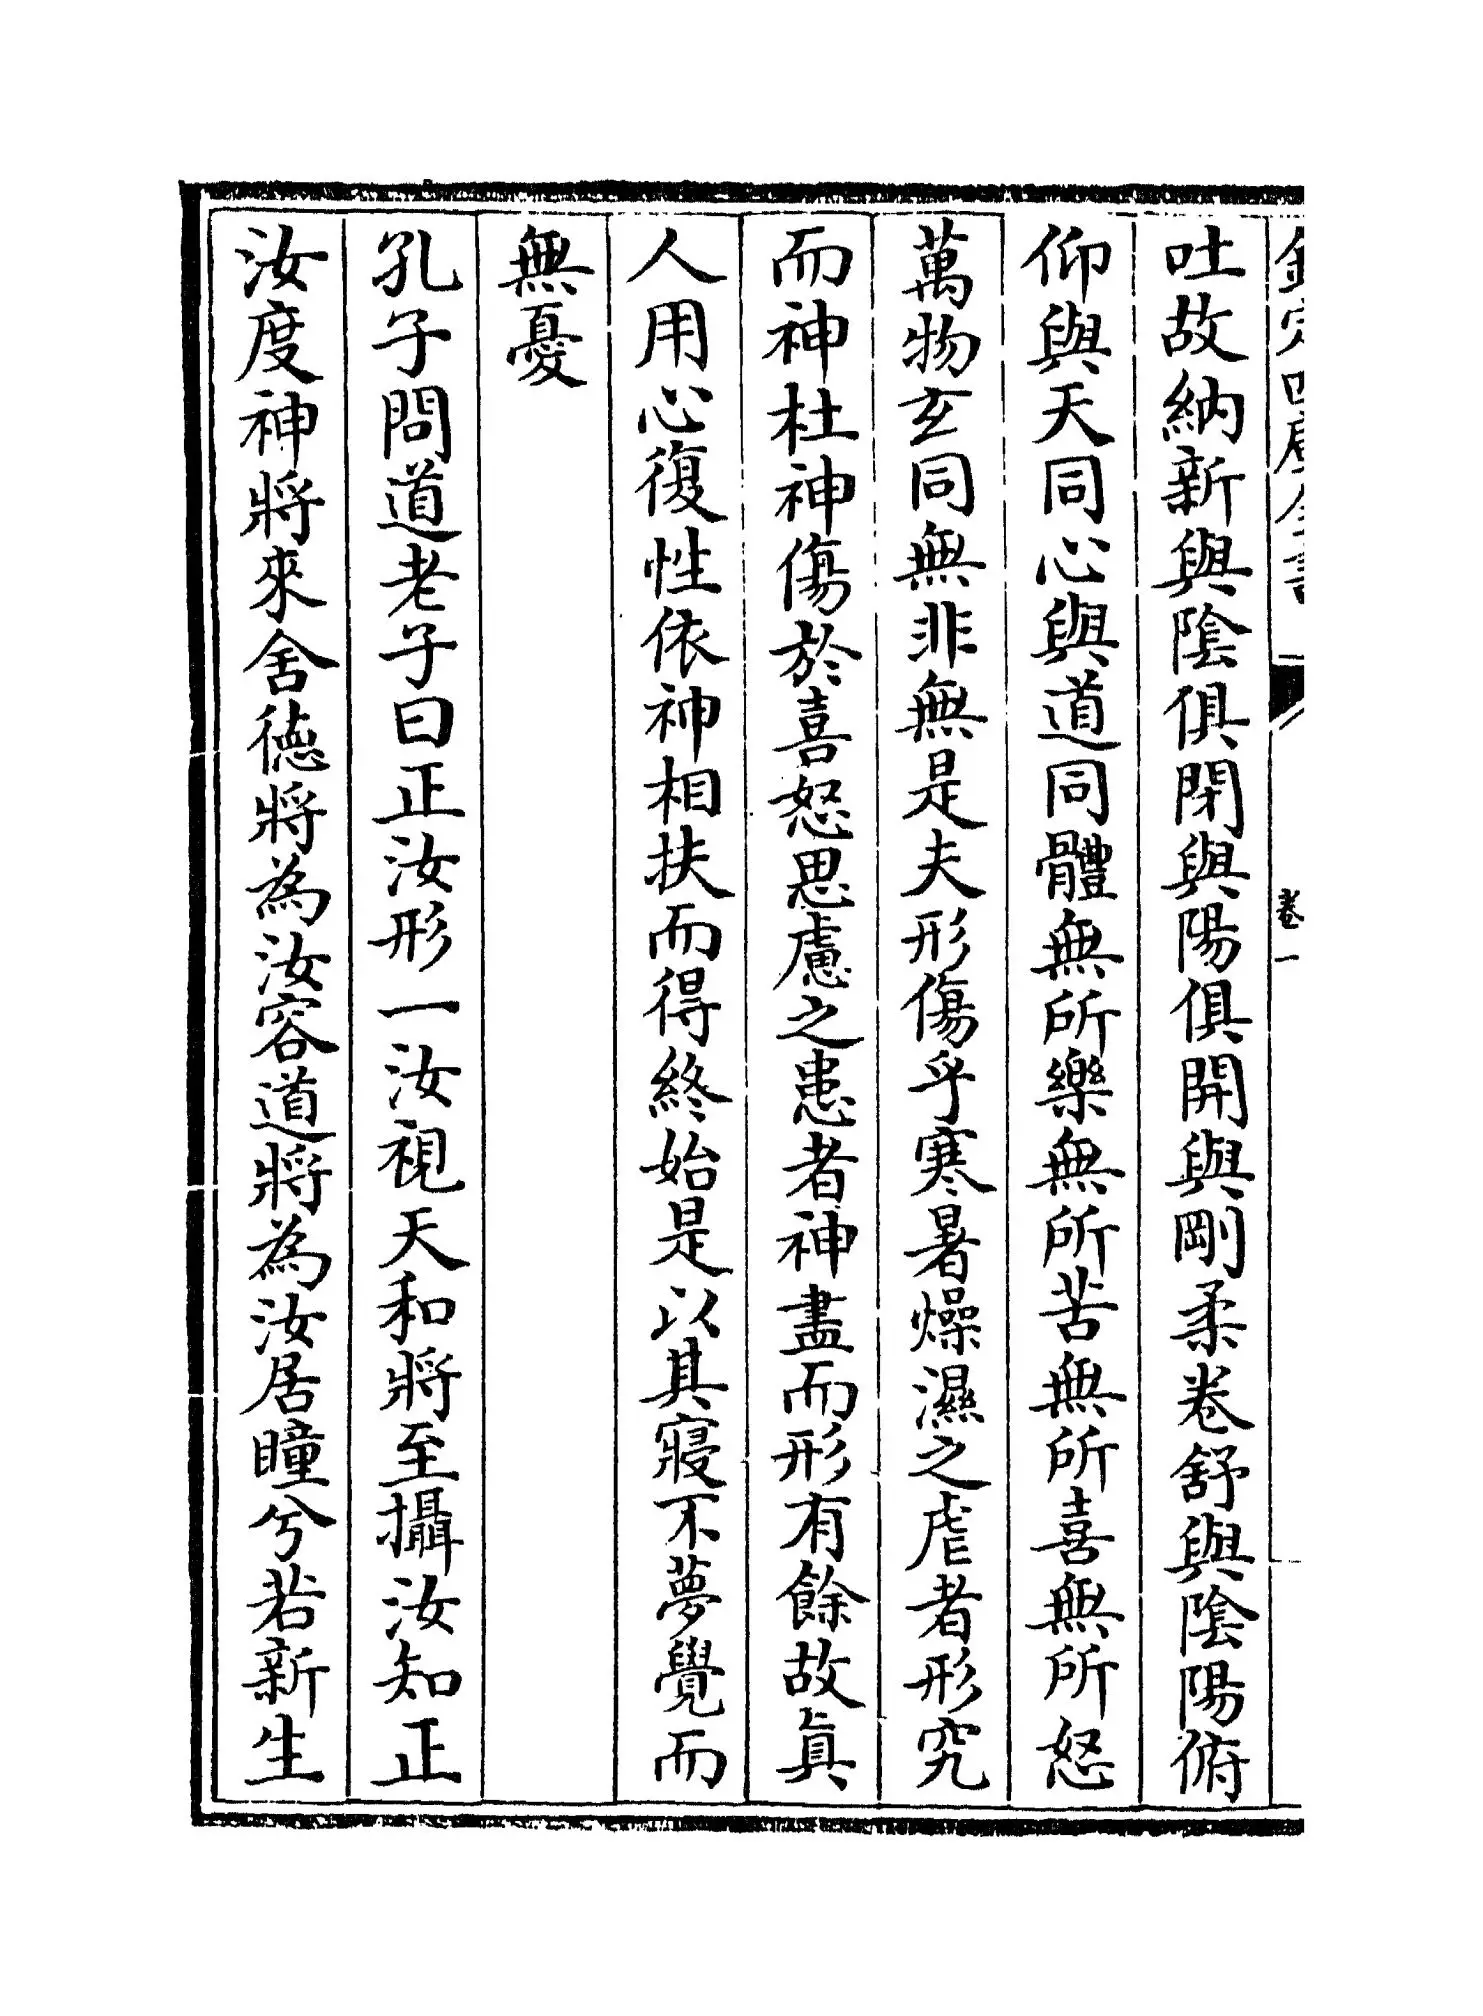 欽定四庫全書
卷一
吐故納新與陰俱閉與陽俱開與剛柔卷舒與陰陽俯
仰與天同心與道同體無所樂無所苦無所喜無所怒
萬物玄同無非無是夫形傷乎寒暑燥濕之虐者形究
而神杜神傷於喜怒思慮之患者神盡而形有餘故真
人用心復性依神相扶而得終始是以其寢不夢覺而
無憂
孔子問道老子曰正汝形一汝視天和將至攝汝知正
汝度神將來舍德將為汝容道將為汝居瞳兮若新生